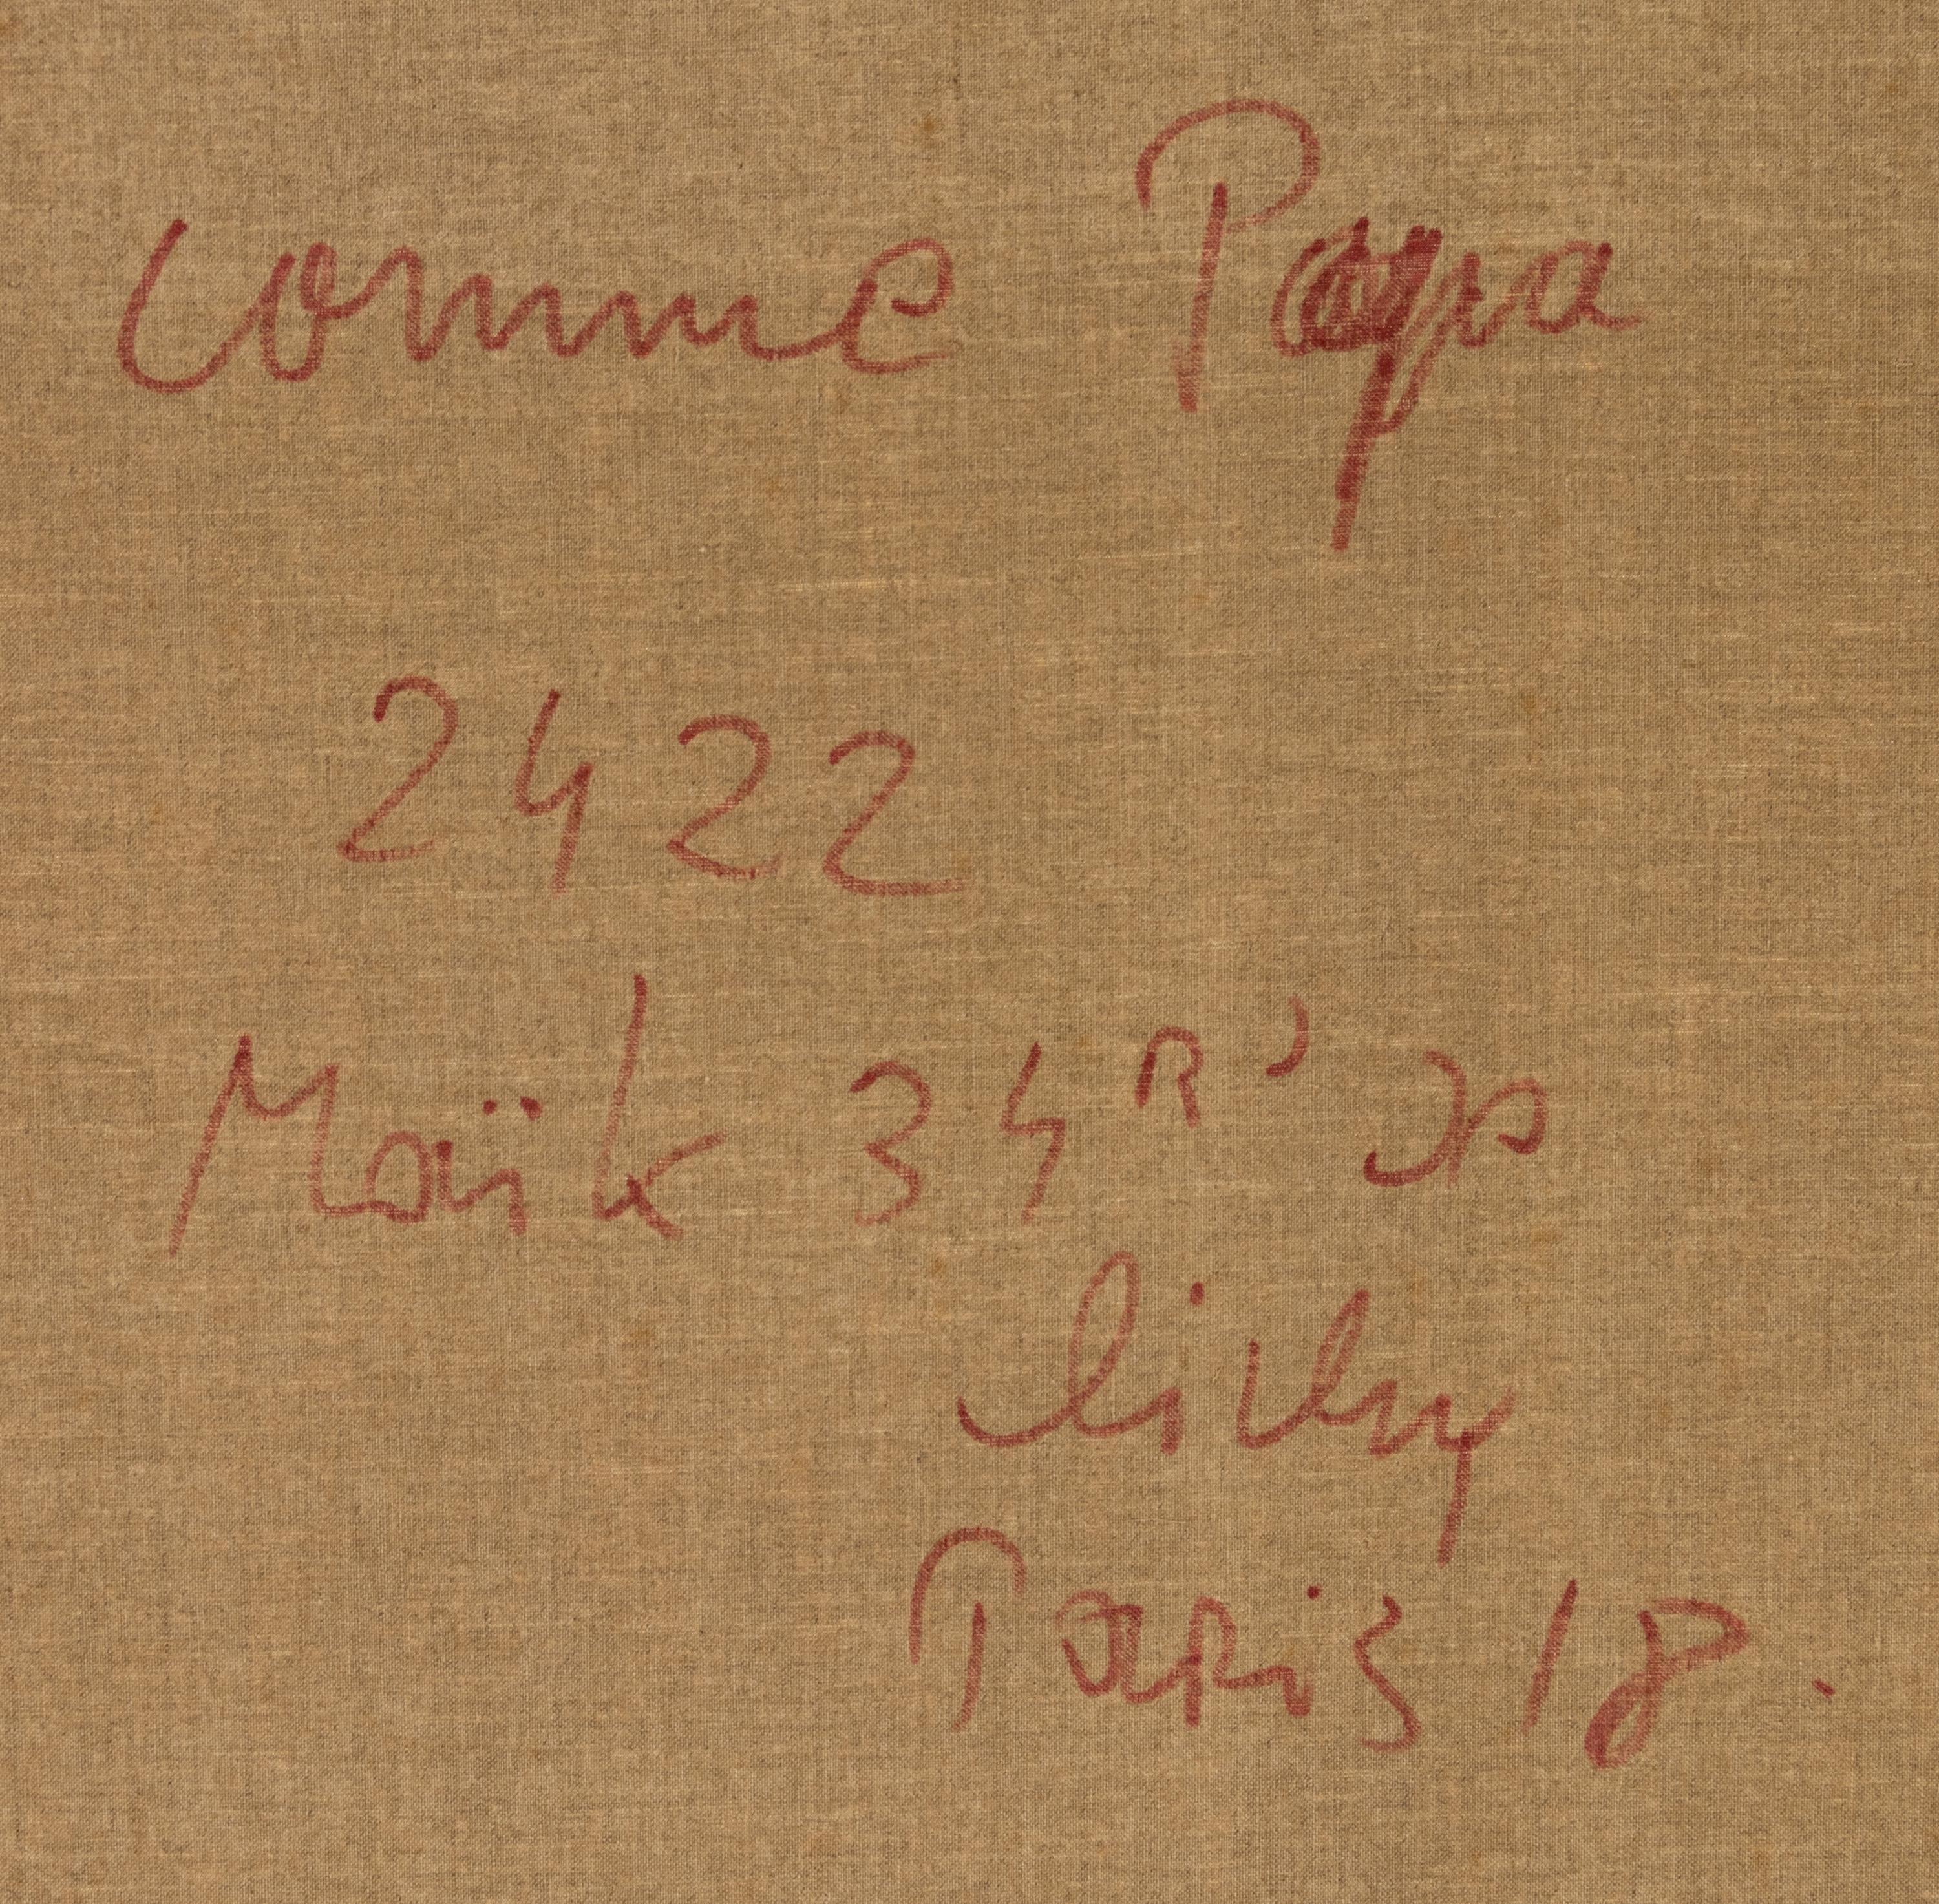 Comme Papa
2422
Maïk 34 R
Clichy
Paris 18.